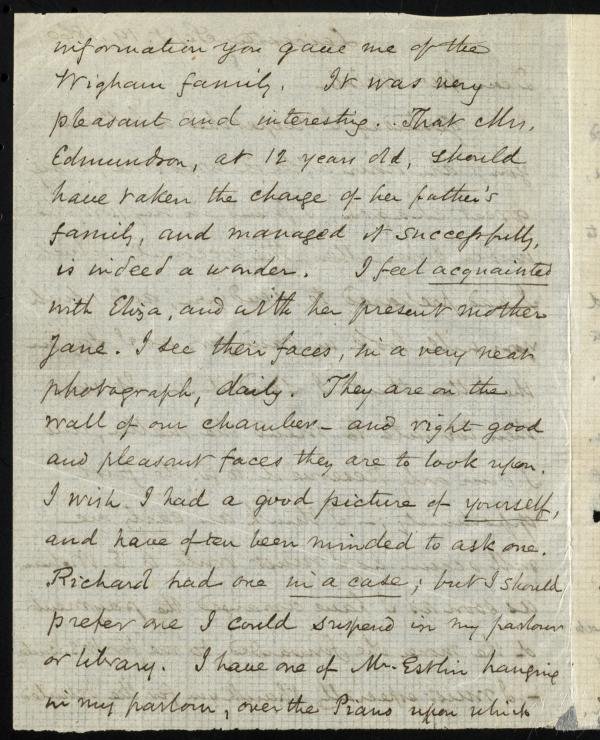 information you gave me of the
Wigham family. It was very
pleasant and interesting. That Mrs.
Edmundson, at 12 years old, should
have taken the charge of her father's
family, and managed it successfully,
is indeed a wonder. I feel acquainted
with Eliza, and with her present mother
Jane. I see their faces, in a very neat
photograph, daily. They are on the
wall of our chamber – and right good
and pleasant faces they are to look upon.
I wish I had a good picture of yourself,
and have often been minded to ask one.
Richard had one in a case; but I should
prefer one I could suspend in my parlour
or library. I have one of Mr. Estlin hanging
in my parlour, over the Piano upon which